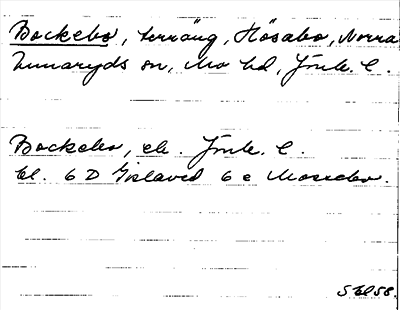 Bockebo, terräng, Hösabo, Norra
Unnaryds sn, Mo hd, Jönk. l.
Bockebo, ek. Jönk. l.
bl. 6 D Gislaved 6 e Mosebo.
SEl 58.